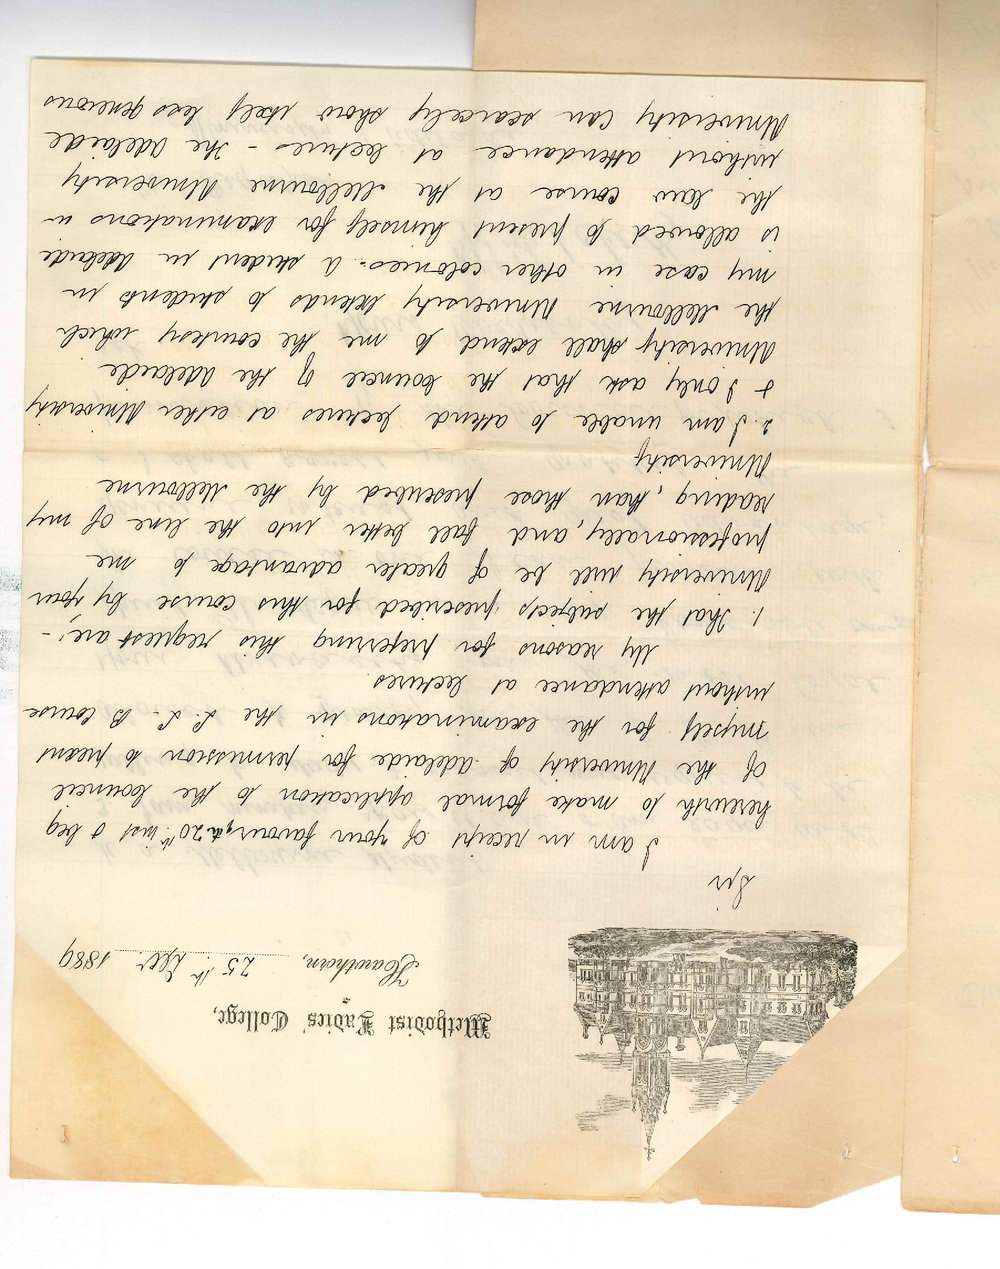 Methodist Ladies' College,
Hawthorn, 25th Decr 1889
Sir
I am in receipt of your favour, 20th inst & beg
herewith to make formal application to the Council
of the University of Adelaide for permission to present
myself for the examinations in the L.L.B Course
without attendance at lectures.
My reasons for preferring this request are,:-
1. That the subjects prescribed for this course by your
University will be of greater advantage to me
professionally, and, fall better into the line of my
reading, than those prescribed by the Melbourne
University
2. I am unable to attend lectures at either University
& I only ask that the Council of the Adelaide
University shall extend to me the courtesy which
the Melbourne University extends to students in
my case in other colonies. A student in Adelaide
is allowed to present himself for examinations in
the law course at the Melbourne University
without attendance at lectures - The Adelaide
University can scarcely show itself less generous